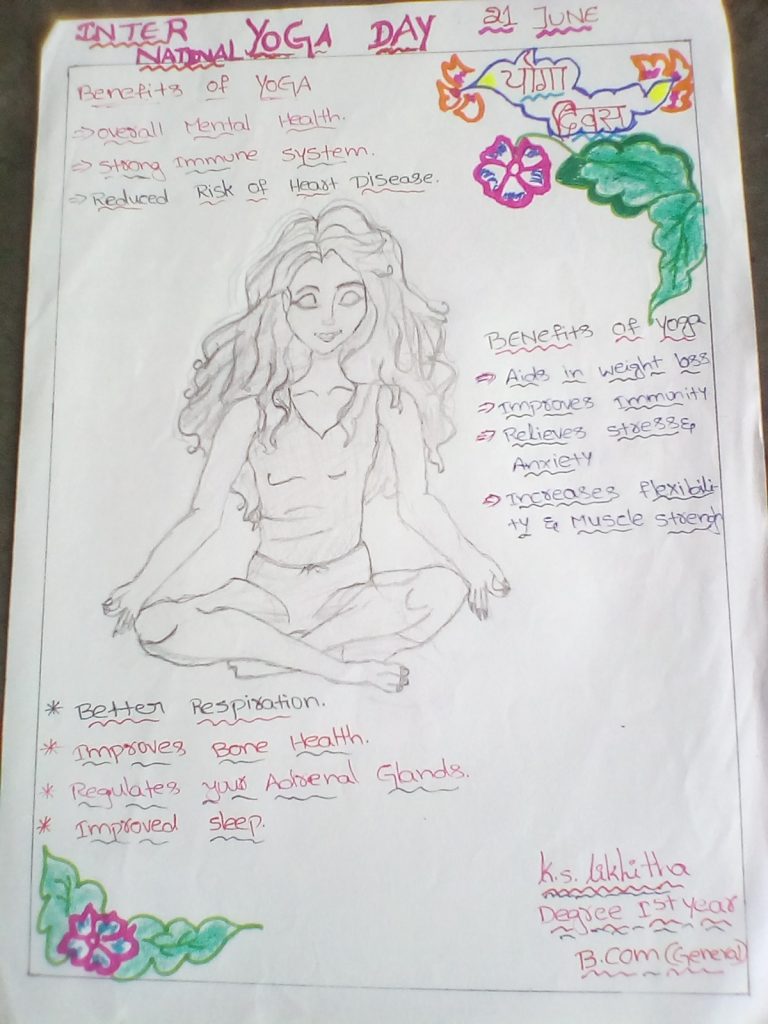 INTER
NATIONAL YOGA DAY 21 JUNE
Benefits of YOGA
⇒ overall Mental Health.
⇒ strong Immune system.
⇒ Reduced Risk of Heart Disease.
योगा
दिवस
BENEfits of Yoga
⇒ Aids in weight loss
⇒ Improves Immunity
⇒ Relieves stress &
Anxiety
⇒ Increases flexibili-
ty & Muscle strengh
* Better Respiration.
* Improves Bone Health.
* Regulates your Adrenal Glands.
* Improved sleep.
K.S. likhitha
Degree Ist Year
B.COM (General)